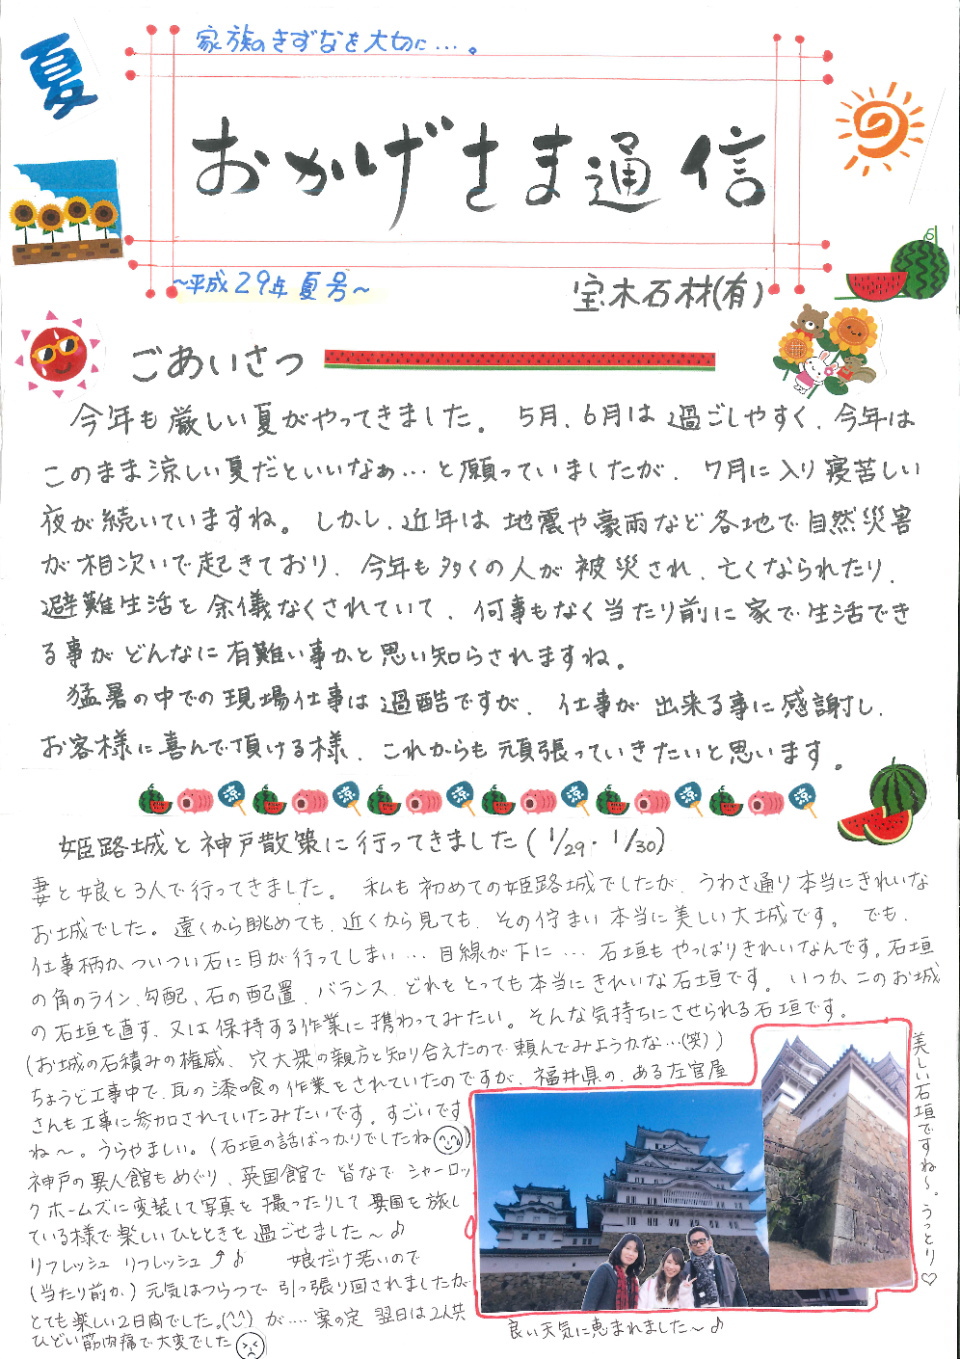 夏
家族のきずなを大切に…。
おかげさま通信
～平成29年 夏号～
宝木石材(有)
ごあいさつ
今年も厳しい夏がやってきました。5月、6月は過ごしやすく、今年は
このまま涼しい夏だといいなぁ…と願っていましたが、7月に入り寝苦しい
夜が続いていますね。しかし、近年は地震や豪雨など各地で自然災害
が相次いで起きており、今年も多くの人が被災され、亡くなられたり、
避難生活を余儀なくされていて、何事もなく当たり前に家で生活でき
る事がどんなに有難い事かと思い知らされますね。
猛暑の中での現場仕事は過酷ですが、仕事が出来る事に感謝し、
お客様に喜んで頂ける様、これからも頑張っていきたいと思います。
涼 涼 涼 涼 涼 涼
姫路城と神戸散策に行ってきました(1/29・1/30)
妻と娘と3人で行ってきました。私も初めての姫路城でしたが、うわさ通り本当にきれいな
お城でした。遠くから眺めても、近くから見ても、その佇まい本当に美しい大城です。でも、
仕事柄か、ついつい石に目が行ってしまい…目線が下に…石垣もやっぱりきれいなんです。石垣
の角のライン、勾配、石の配置、バランス、どれをとっても本当にきれいな石垣です。いつか、このお城
の石垣を直す、又は保持する作業に携わってみたい。そんな気持ちにさせられる石垣です。
(お城の石積みの権威、穴太衆の親方と知り合えたので頼んでみようかな…(笑))
ちょうど工事中で、瓦の漆喰の作業をされていたのですが、福井県の、ある左官屋
さんも工事に参加されていたみたいです。すごいです
ね～。うらやましい。(石垣の話ばっかりでしたね)
神戸の異人館もめぐり、英国館で皆なでシャーロッ
クホームズに変装して写真を撮ったりして異国を旅し
ている様で楽しいひとときを過ごせました～♪
リフレッシュ リフレッシュ♪♪ 娘だけ若いので
(当たり前か)元気はつらつで引っ張り回されましたが
とても楽しい2日間でした。(^^)が…。案の定 翌日は2人共
ひどい筋肉痛で大変でした
美しい石垣ですね～。うっとり♡
良い天気に恵まれました～♪